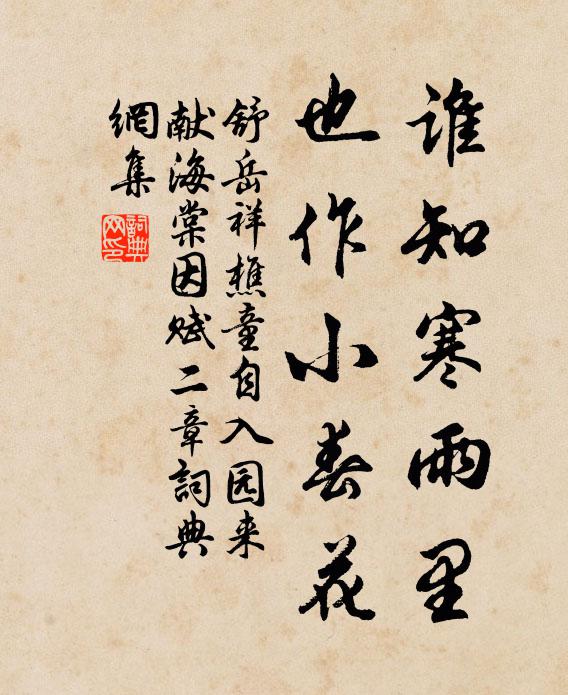 谁知寒雨里
也作小春花
舒岳祥樵童自入园来
献海棠因赋二章词典
網集
詞典
网印